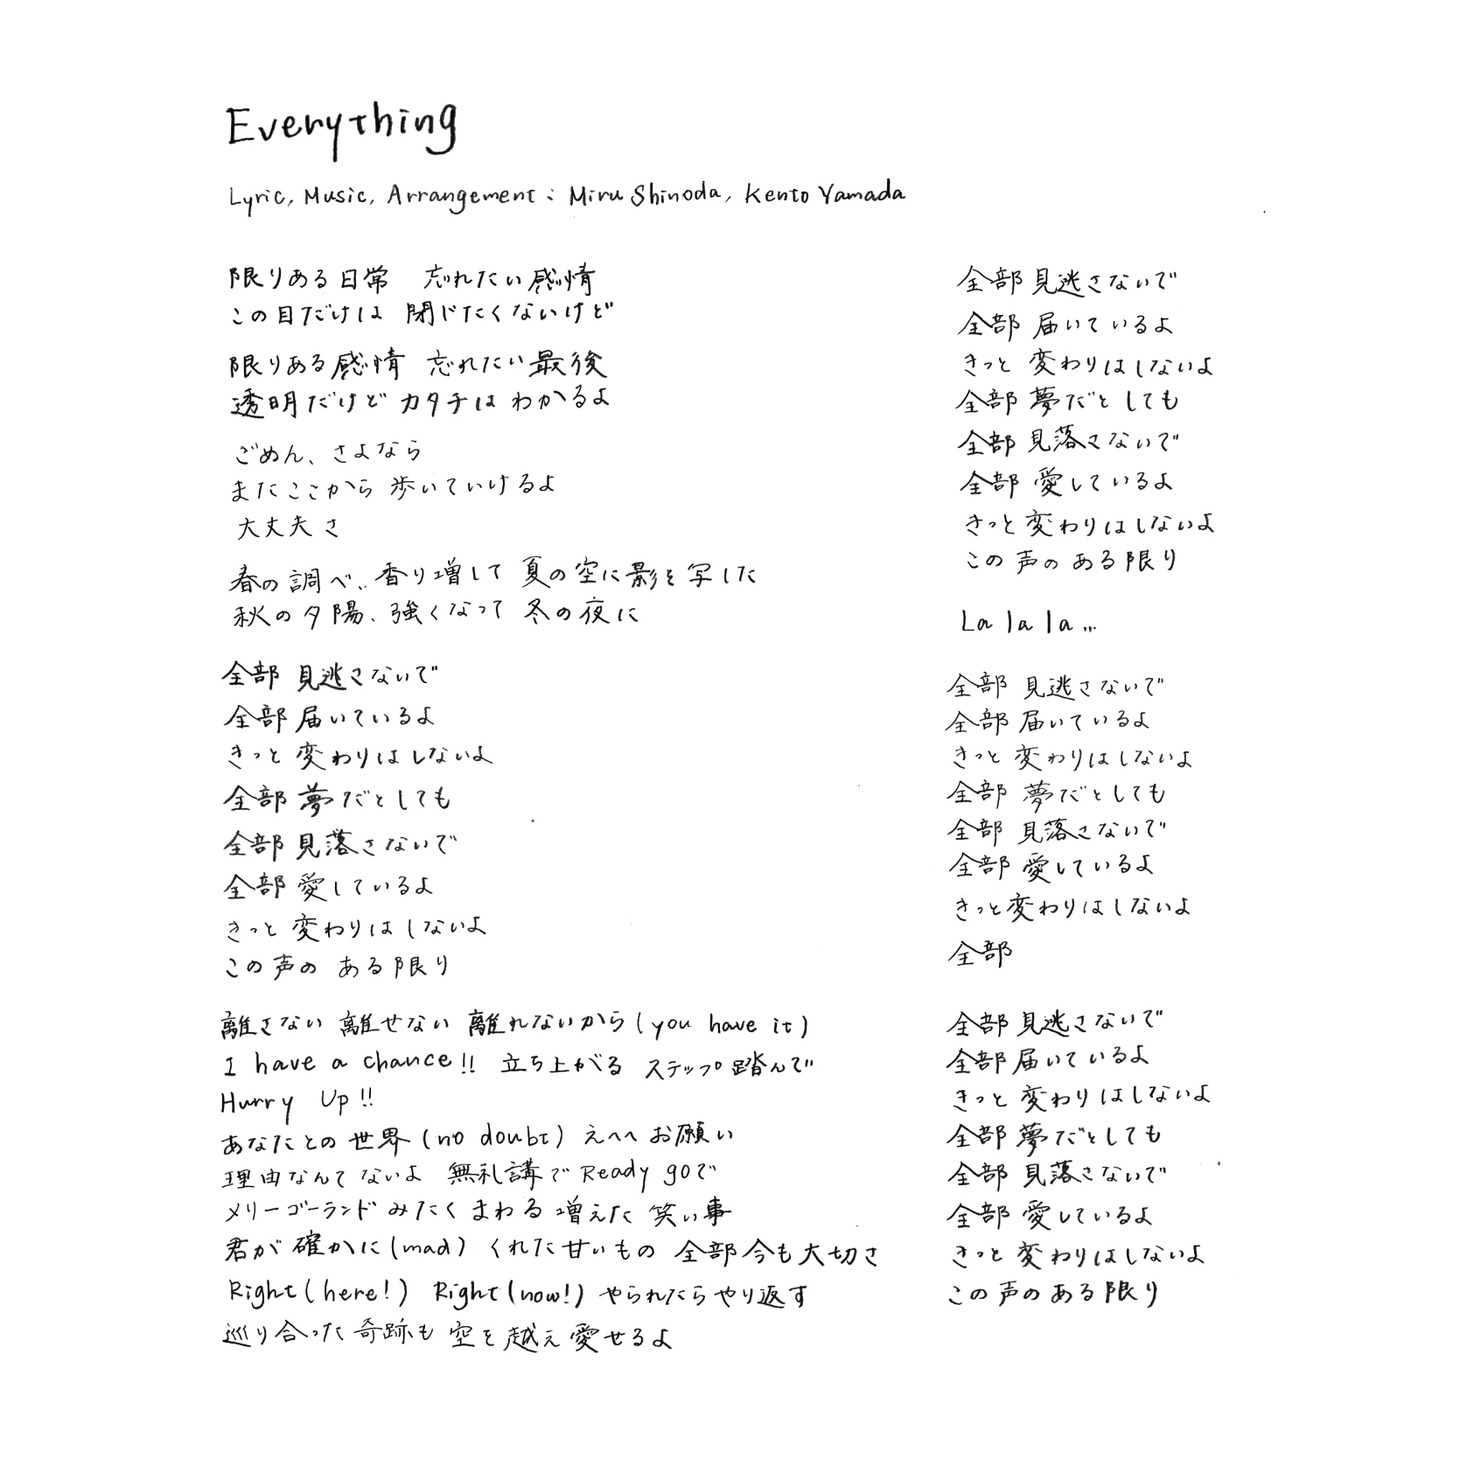 Everything
Lyric, Music, Arrangement : Miru Shinoda, Kento Yamada
限りある日常 忘れたい感情
この目だけは 閉じたくないけど
限りある感情 忘れたい最後
透明だけど カタチは わかるよ
ごめん、さよなら
またここから 歩いていけるよ
大丈夫さ
春の調べ、香り増して 夏の空に影を写した
秋の夕陽、強くなって 冬の夜に
全部 見逃さないで
全部 届いているよ
きっと 変わりはしないよ
全部 夢だとしても
全部 見落さないで
全部 愛しているよ
きっと 変わりはしないよ
この声の ある限り
離さない 離せない 離れないから (you have it)
I have a chance!! 立ち上がる ステップ踏んで
Hurry Up!!
あなたとの世界 (no doubt) えへへ お願い
理由なんてないよ 無礼講で Ready goで
メリーゴーランド みたく まわる 増えた 笑い事
君が 確かに (mad) くれた甘いもの 全部今も大切さ
Right (here!) Right (now!) やられたらやり返す
巡り合った奇跡も 空を越え愛せるよ
全部 見逃さないで
全部 届いているよ
きっと 変わりはしないよ
全部 夢だとしても
全部 見落さないで
全部 愛しているよ
きっと 変わりはしないよ
この声のある限り
La la la ...
全部 見逃さないで
全部 届いているよ
きっと 変わりはしないよ
全部 夢だとしても
全部 見落さないで
全部 愛しているよ
きっと 変わりはしないよ
全部
全部 見逃さないで
全部 届いているよ
きっと 変わりはしないよ
全部 夢だとしても
全部 見落さないで
全部 愛しているよ
きっと 変わりはしないよ
この声のある限り